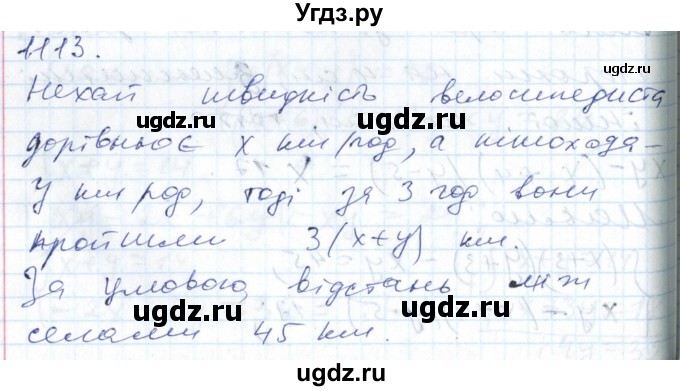 Угдз.ру
1113.
Нехай швидкість велосипедиста
дорівнює x км/год, а пішохода –
y км/год, тоді за 3 год вони
пройшли 3(x+y) км.
За умовою, відстань між
селами 45 км.
ugdz.ru
ugdz.ru
ugdz.ru
ugdz.ru
ugdz.ru
ugdz.ru
Угдз.ру